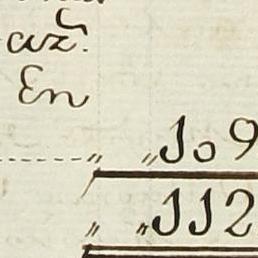 az̃.
En
" "109
" "112